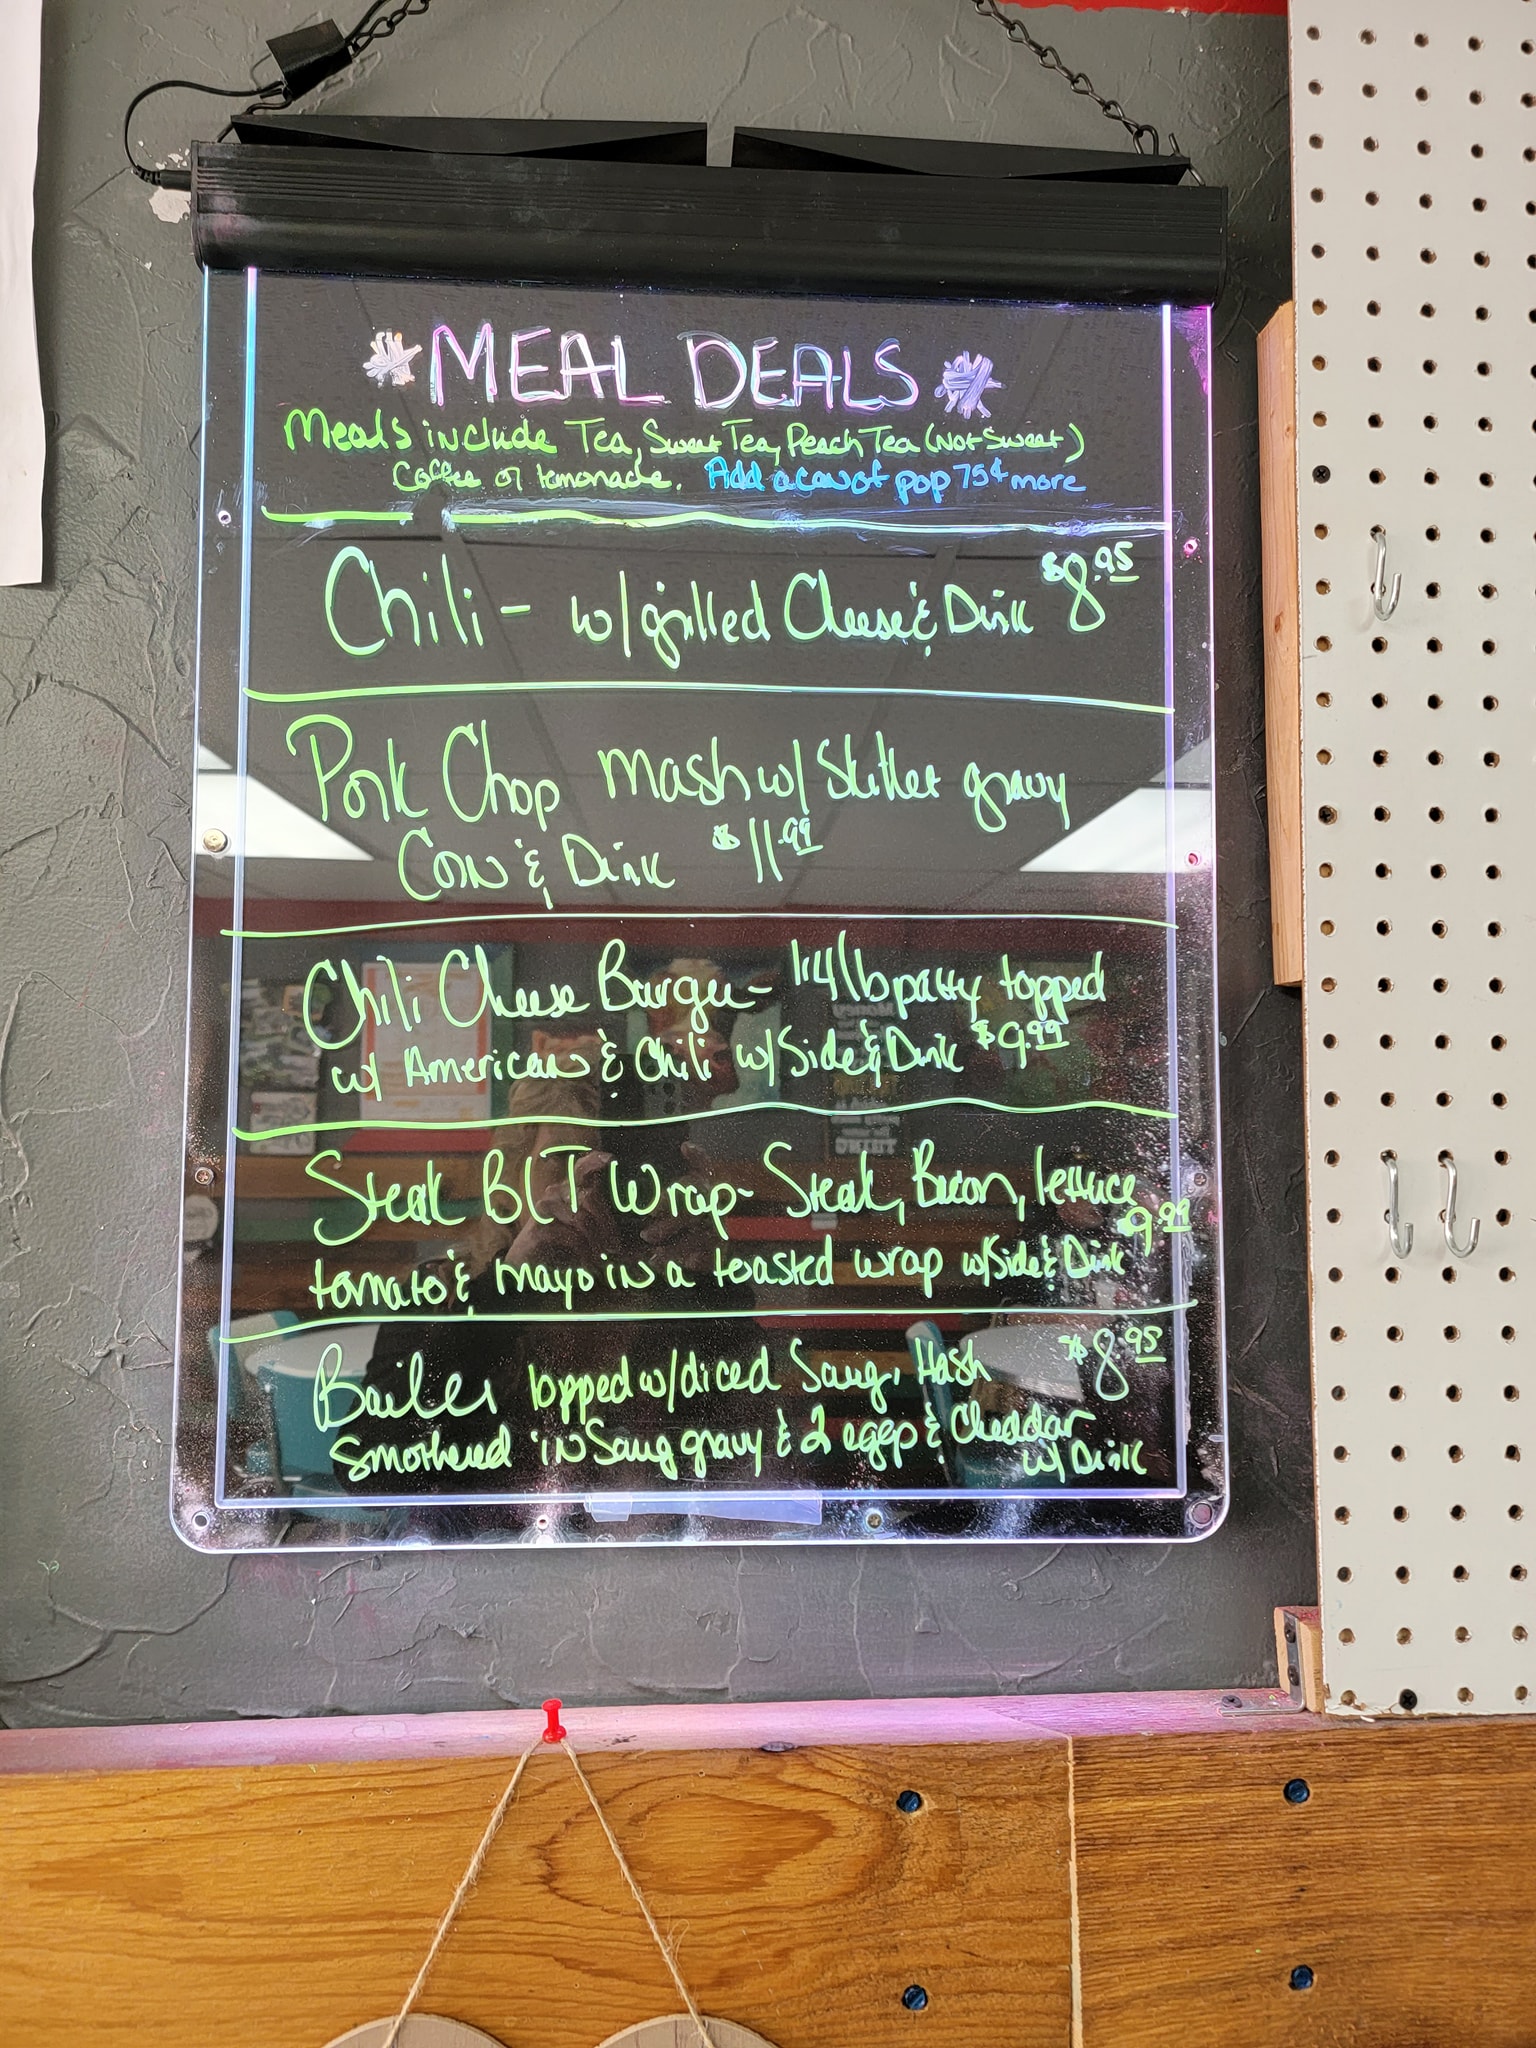 MEAL DEALS
Meals include Tea, Sweet Tea, Peach Tea (Not Sweet)
Coffee or lemonade. Add a can of pop 75¢ more
Chili - w/ grilled Cheese & Drink $8.95
Pork Chop Mash w/ Skillet gravy
Corn & Drink $11.99
Chili Cheese Burger - 1/4 lb patty topped
w/ American & Chili w/ Side & Drink $9.99
Steak BLT Wrap - Steak, Bacon, lettuce
tomato & mayo in a toasted wrap w/ Side & Drink $9.99
topped w/ diced Saug. Hash $8.95
Smothered in Saug gravy & 2 eggs & Cheddar
w/ Drink